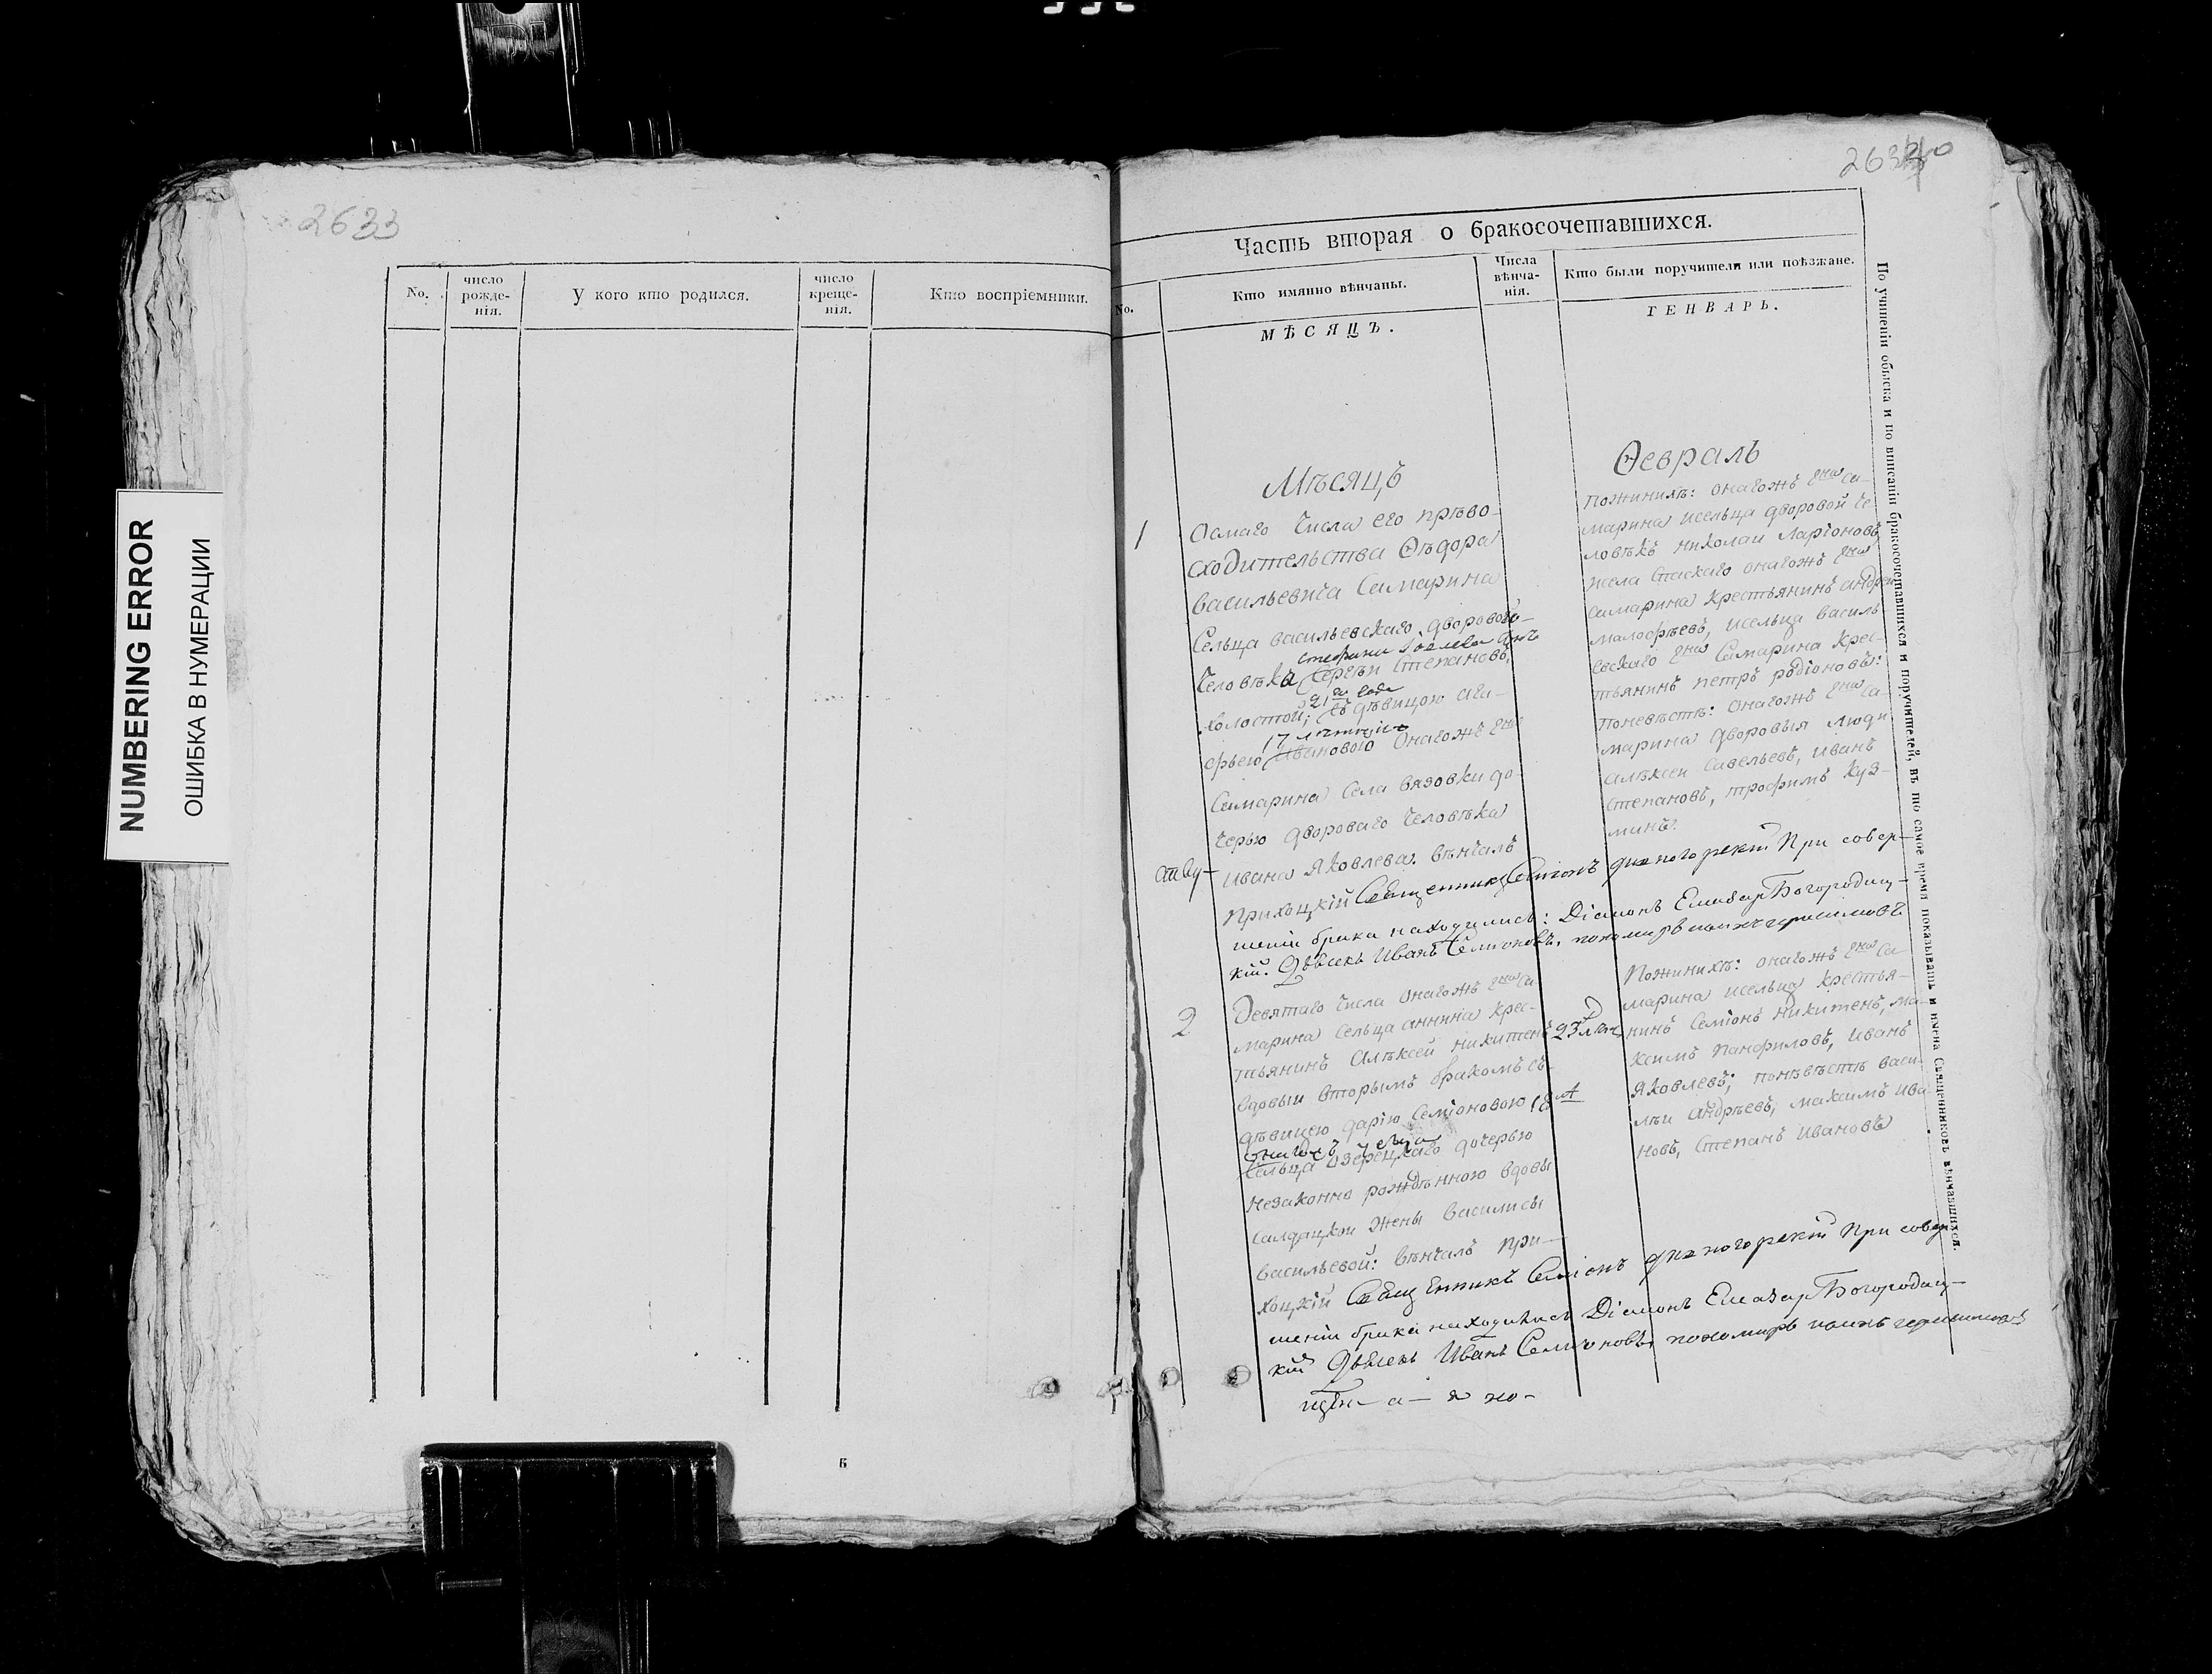 NUMBERING ERROR
ОШИБКА В НУМЕРАЦИИ
2633
No.
число рожде- нія.
У кого кто родился.
число креще- нія.
Кто воспріемники.
Б
Часть вторая о бракосочетавшихся.
No.
Кто имянно вѣнчаны.
Числа вѣнча- нія.
Кто были поручители или поѣзжане.
МѢСЯЦЪ.
ГЕНВАРЬ.
Мѣсяцъ
Ѳевраль
1
Осмаго Числа его прѣво-
сходительства Ѳѣдора
васильевича Самарина
Сельца васильевскаго дворового
Человѣка
Сергѣи Степановъ,
21 го года
холостой, съ дѣвицою ага-
17
фьею Ивановою Онагожъ Гна
Самарина Села вязовки до
черью двороваго Человѣка
ивана Яковлева: вѣнчалъ
приходцкій Священникъ Семіонъ При совер-
шеніи брака находились: Діаконъ Елиазар Богородиц-
кій. Дьячекъ Иванъ Семіоновъ, пономарь герасимовъ
пожинихѣ: онагожъ Гна Са-
марина исельца дворовой че
ловѣкъ николаи Ларіоновъ
исела Спаскаго онагожъ Гна
Самарина крестьянинъ андреи
малофѣевъ, исельца василь
евскаго Гна Самарина крес-
тьянинъ петръ родіоновъ:
поневѣстѣ: онагожъ Гна Са-
марина дворовыя люди
алѣксеи савельевъ, иванъ
степановъ, трофимъ куз-
минъ.
2
Девятаго Числа онагожъ Гна Са
марина Сельца аннина крес-
тьянинъ Алѣксей никитенъ 23 лѣтъ
вдовыи вторымъ бракомъ съ
дѣвицею дарію Семіоновою 18 лѣ
онагожъ
Сельца Озерецкаго дочерью
незаконно рождѣнною вдовы
салдацкои жены василисы
васильевой: вѣнчалъ при-
ходцкій Священникъ Семіонъ При совер
шеніи брака находились Діаконъ Елиазар Богородиц-
кій Дьячекъ Иванъ Семіоновъ, пономарь герасимовъ
Пожинихѣ: онагожъ Гна Са
марина исельца крестья-
нинъ Семіонъ никитенъ, ма-
ксимъ панфиловъ, иванъ
Яковлевъ; понѣвѣстѣ васи-
лѣи андрѣевъ, максимъ ива
новъ, Степанъ ивановъ
По учиненіи обыска и по вписаніи бракосочетавшихся и поручителей, въ то самое время показывать и имена Священниковъ вѣнчавшихся.